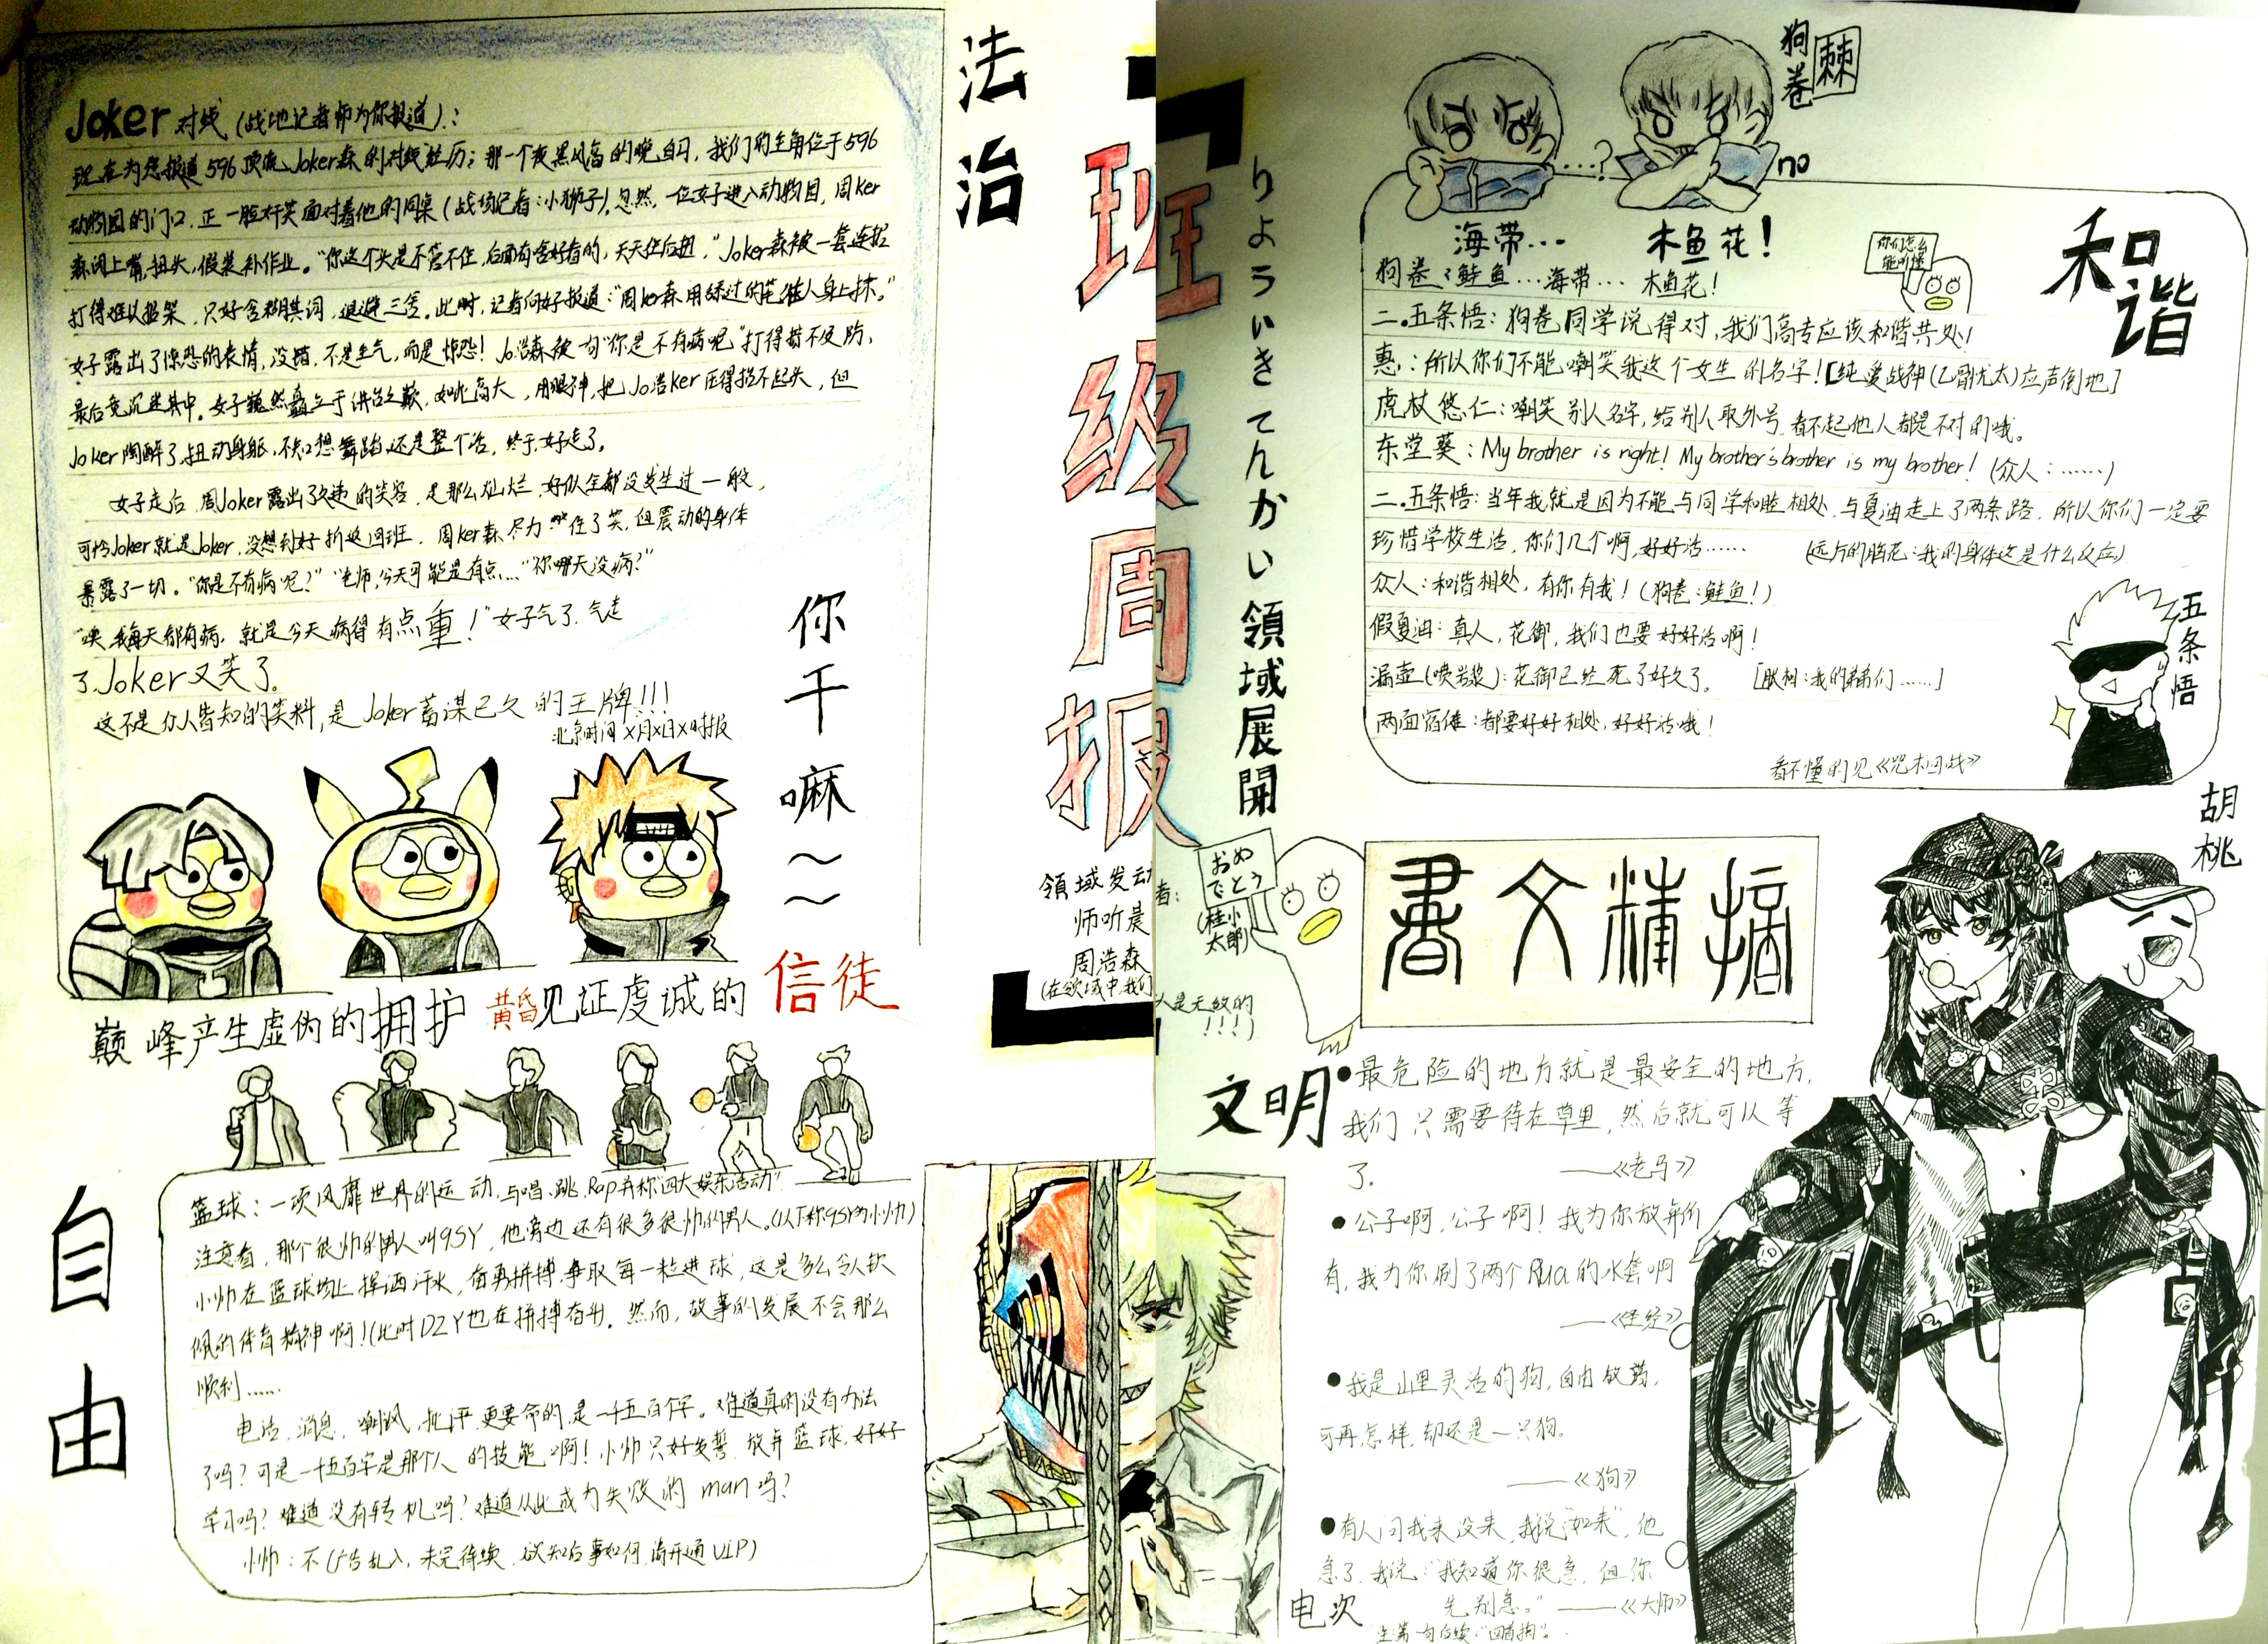 Joker 对线 (战地记者师为你报道)：
现在为您报道596顶流Joker森的对线经历；那一个夜黑风高的晚自习，我们的主角位于596
动物园的门口，正一脸奸笑面对着他的同桌(战场记者：小狮子)。忽然，一位女子进入动物园，周ker
森闭上嘴，扭头，假装补作业。"你这个头是不管不住，后面有啥好看的，天天往后扭，"Joker森被一套连招
打得难以招架，只好含糊其词，退避三舍。此时，记者向好报道："周ker森用舔过的笔往人身上抹。"
女子露出了惊恐的表情，没错，不是生气，而是惊恐！Jo浩森被句"你是不有病呢"打得措不及防，
最后竟沉迷其中。女子巍然矗立于讲台之巅，如此高大，用眼神，把Jo浩ker压得抬不起头，但
Joker陶醉了，扭动身躯，不知想舞蹈还是整个活，终于，女走了。
女子走后，周Joker露出了久违的笑容，是那么灿烂，好似全都没发生过一般，
可怜Joker就是Joker，没想到女折返回班，周ker森尽力住了笑，但震动的身体
暴露了一切。"你是不有病呢？""老师，今天可能是有点…""你哪天没病？"
"噢，我每天都有病，就是今天病得有点重！"女子气了，气走
了，Joker又笑了。
这不是众人皆知的笑料，是Joker蓄谋已久的王牌!!!
北京时间X月X日X时报
法治
你干嘛～～
巅峰产生虚伪的拥护 黄昏见证虔诚的 信徒
自由
篮球：一项风靡世界的运动，与唱、跳、Rap并称"四大娱乐活动"
注意看，那个很帅的男人叫GSY，他旁边还有很多很帅的男人。(以下称GSY为小帅)
小帅在篮球场上挥洒汗水，奋勇拼搏，争取每一粒进球，这是多么令人钦
佩的体育精神啊！(此时DZY也在拼搏奋斗)。然而，故事的发展不会那么
顺利……
电话，消息，嘲讽，批评，更要命的是一千五百字。难道真的没有办法
了吗？可是一千五百字是那个人的技能啊！小帅只好发誓，放弃篮球，好好
学习吗？难道没有转机吗？难道从此成为失败的man吗？
小帅：不(广告乱入，未完待续，欲知后事如何，请开通VIP)
班级周报
領域发动者：
师听晨
周浩森
(在领域中，我们
人是无敌的
!!!)
りょういきてんかい領域展開
狗卷棘
…?
no
海带…
木鱼花！
和谐
你们怎么
能听懂
狗卷：鲑鱼…海带… 木鱼花！
二.五条悟：狗卷同学说得对，我们高专应该和谐共处！
惠：所以你们不能嘲笑我这个女生的名字！[纯爱战神(乙骨忧太)应声倒地]
虎杖悠仁：嘲笑别人名字，给别人取外号，看不起他人都是不对的哦。
东堂葵：My brother is right! My brother's brother is my brother! (众人：……)
二.五条悟：当年我就是因为不能与同学和睦相处，与夏油走上了两条路，所以你们一定要
珍惜学校生活，你们几个啊，好好活…… (远方的脑花：我的身体这是什么反应)
众人：和谐相处，有你有我！(狗卷：鲑鱼！)
假夏油：真人，花御，我们也要好好活啊！
漏壶(喷岩浆)：花御已经死了好久了。 [胀相：我的弟弟们……]
两面宿傩：都要好好相处，好好活哦！
看不懂的见《咒术回战》
五条悟
胡桃
おめ
でとう
(桂小
太郎)
書文精摘
文明
●最危险的地方就是最安全的地方，
我们只需要待在草里，然后就可以等
了。 ——《老马》
●公子啊，公子啊！我为你放弃所
有，我为你刷了两个Rua的水套啊
——《往经》
●我是山里灵活的狗，自由放荡，
可再怎样，却还是一只狗。
——《狗》
●有人问我来没来，我说"如来"，他
急了，我说："我知道你很急，但你
先别急。" ——《大师》
电次